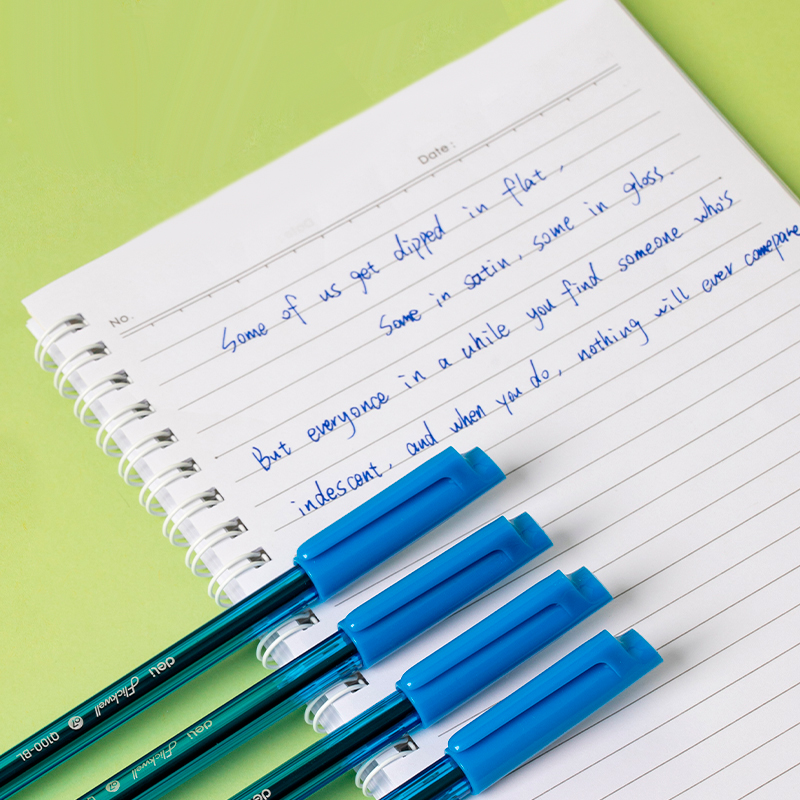 Date:
No.
Some of us get dipped in flat,
Some in satin, some in gloss.
But everyonce in a while you find someone who's
indescent, and when you do, nothing will ever comepare
deli Flickwell 0.7 Q100-BL
deli Flickwell 0.7
deli